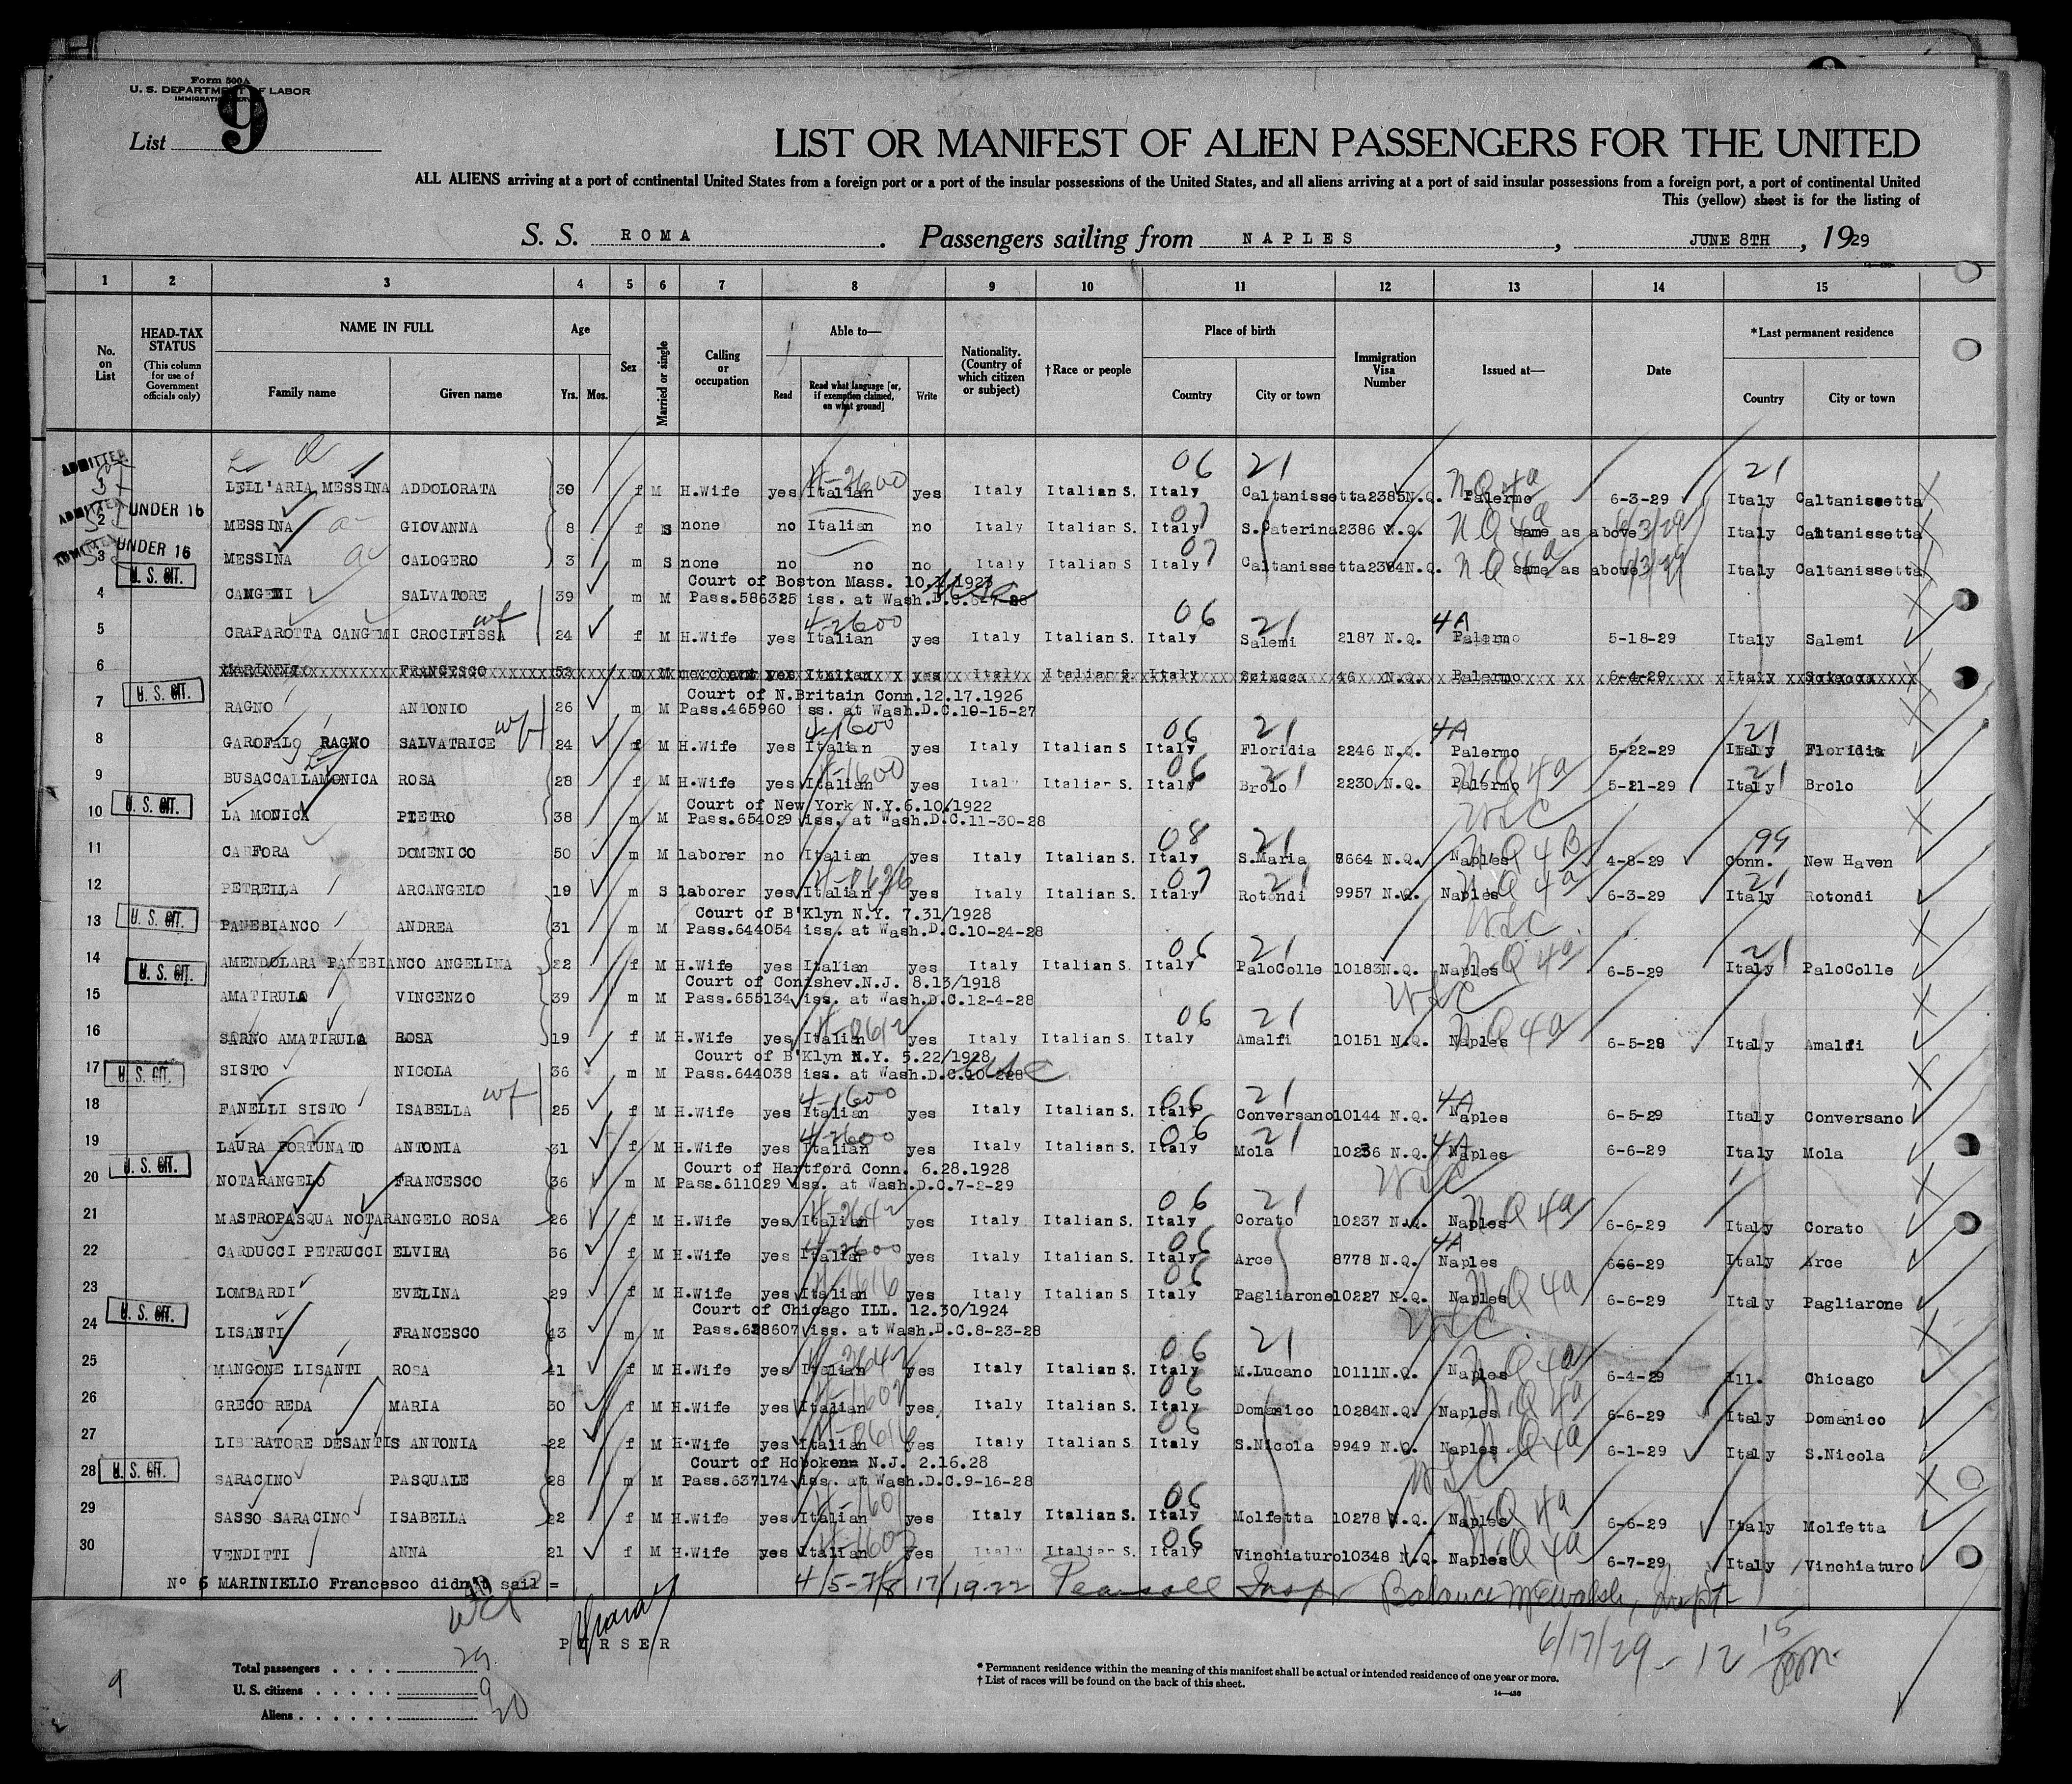 Form 500A
U. S. DEPARTMENT OF LABOR
IMMIGRATION SERVICE
List 9
LIST OR MANIFEST OF ALIEN PASSENGERS FOR THE UNITED
ALL ALIENS arriving at a port of continental United States from a foreign port or a port of the insular possessions of the United States, and all aliens arriving at a port of said insular possessions from a foreign port, a port of continental United
This (yellow) sheet is for the listing of
S. S. ROMA. Passengers sailing from NAPLES, JUNE 8TH, 1929
1 2 3 4 5 6 7 8 9 10 11 12 13 14 15
No. on List
HEAD-TAX STATUS (This column for use of Government officials only)
NAME IN FULL
Family name Given name
Age
Yrs. Mos.
Sex
Married or single
Calling or occupation
Able to—
Read Read what language [or, if exemption claimed, on what ground] Write
Nationality. (Country of which citizen or subject)
†Race or people
Place of birth
Country City or town
Immigration Visa Number
Issued at—
Date
*Last permanent residence
Country City or town
06 21 21
ADMITTED LELL'ARIA MESSINA ADDOLORATA 30 f M H.Wife yes Italian yes Italy Italian S. Italy Caltanissetta 2385 N.Q. Palermo 6-3-29 Italy Caltanissetta
ADMITTED 2 UNDER 16 MESSINA GIOVANNA 8 f S none no Italian no Italy Italian S. Italy S.Caterina 2386 N.Q. same as above Italy Caltanissetta
ADMITTED 3 UNDER 16 MESSINA CALOGERO 3 m S none no no no Italy Italian S Italy Caltanissetta 2384 N.Q. same as above Italy Caltanissetta
U. S. CIT. Court of Boston Mass.
4 CANGEMI SALVATORE 39 m M Pass.586325 iss. at Wash.D.C.
5 CRAPAROTTA CANGEMI CROCIFISSA wf 24 f M H.Wife yes Italian yes Italy Italian S. Italy Salemi 2187 N.Q. 4A Palermo 5-18-29 Italy Salemi
6 MARINELLO FRANCESCO 53 m M merchant yes Italian yes Italy Italian S. Italy Sciacca 46 N.Q. Palermo 6-4-29 Italy Sciacca
U. S. CIT. Court of N.Britain Conn.12.17.1926
7 RAGNO ANTONIO 26 m M Pass.465960 iss. at Wash.D.C.10-15-27
8 GAROFALO RAGNO SALVATRICE wf 24 f M H.Wife yes Italian yes Italy Italian S Italy Floridia 2246 N.Q. 4A Palermo 5-22-29 Italy Floridia
9 BUSACCA LAMONICA ROSA 28 f M H.Wife yes Italian yes Italy Italian S. Italy Brolo 2230 N.Q. Palermo 5-21-29 Italy Brolo
U. S. CIT. Court of New York N.Y.6.10.1922
10 LA MONICA PIETRO 38 m M Pass.654029 iss. at Wash.D.C.11-30-28
11 CARFORA DOMENICO 50 m M laborer no Italian yes Italy Italian S. Italy S.Maria 8664 N.Q. Naples 4-8-29 Conn. New Haven
12 PETRELLA ARCANGELO 19 m S laborer yes Italian yes Italy Italian S. Italy Rotondi 9957 N.Q. Naples 6-3-29 Italy Rotondi
U. S. CIT. Court of B'Klyn N.Y. 7.31/1928
13 PANEBIANCO ANDREA 31 m M Pass.644054 iss. at Wash.D.C.10-24-28
14 AMENDOLARA PANEBIANCO ANGELINA 22 f M H.Wife yes Italian yes Italy Italian S. Italy PaloColle 10183 N.Q. Naples 6-5-29 Italy PaloColle
U. S. CIT. Court of Conishev.N.J. 8.13/1918
15 AMATIRULA VINCENZO 39 m M Pass.655134 iss. at Wash.D.C.12-4-28
16 SARNO AMATIRULA ROSA 19 f M H.Wife yes Italian yes Italy Italian S. Italy Amalfi 10151 N.Q. Naples 6-5-29 Italy Amalfi
Court of B'Klyn N.Y. 5.22/1928
17 U. S. CIT. SISTO NICOLA 36 m M Pass.644038 iss. at Wash.D.C.
18 FANELLI SISTO ISABELLA wf 25 f M H.Wife yes Italian yes Italy Italian S. Italy Conversano 10144 N.Q. 4A Naples 6-5-29 Italy Conversano
19 LAURA FORTUNATO ANTONIA 31 f M H.Wife yes Italian yes Italy Italian S. Italy Mola 10236 N.Q. 4A Naples 6-6-29 Italy Mola
U. S. CIT. Court of Hartford Conn. 6.28.1928
20 NOTARANGELO FRANCESCO 36 m M Pass.611029 iss. at Wash.D.C.7-2-29
21 MASTROPASQUA NOTARANGELO ROSA 26 f M H.Wife yes Italian yes Italy Italian S. Italy Corato 10237 N.Q. Naples 6-6-29 Italy Corato
22 CARDUCCI PETRUCCI ELVIRA 36 f M H.Wife yes Italian yes Italy Italian S. Italy Arce 8778 N.Q. 4A Naples 6-6-29 Italy Arce
23 LOMBARDI EVELINA 29 f M H.Wife yes Italian yes Italy Italian S. Italy Pagliarone 10227 N.Q. Naples 6-6-29 Italy Pagliarone
U. S. CIT. Court of Chicago ILL. 12.30/1924
24 LISANTI FRANCESCO 43 m M Pass.628607 iss. at Wash.D.C.8-23-28
25 MANGONE LISANTI ROSA 41 f M H.Wife yes Italian yes Italy Italian S. Italy M.Lucano 10111 N.Q. Naples 6-4-29 Ill. Chicago
26 GRECO REDA MARIA 30 f M H.Wife yes Italian yes Italy Italian S. Italy Domanico 10284 N.Q. Naples 6-6-29 Italy Domanico
27 LIBERATORE DESANTIS ANTONIA 22 f M H.Wife yes Italian yes Italy Italian S. Italy S.Nicola 9949 N.Q. Naples 6-1-29 Italy S.Nicola
Court of Hoboken N.J. 2.16.28
28 U. S. CIT. SARACINO PASQUALE 28 m M Pass.637174 iss. at Wash.D.C.9-16-28
29 SASSO SARACINO ISABELLA 22 f M H.Wife yes Italian yes Italy Italian S. Italy Molfetta 10278 N.Q. Naples 6-6-29 Italy Molfetta
30 VENDITTI ANNA 21 f M H.Wife yes Italian yes Italy Italian S. Italy Vinchiaturo 10348 N.Q. Naples 6-7-29 Italy Vinchiaturo
No 6 MARINIELLO Francesco didn't sail =
PURSER
6/17/29 - 12 15 pm
9
Total passengers 29
U. S. citizens 9
Aliens 20
* Permanent residence within the meaning of this manifest shall be actual or intended residence of one year or more.
† List of races will be found on the back of this sheet.
14—430